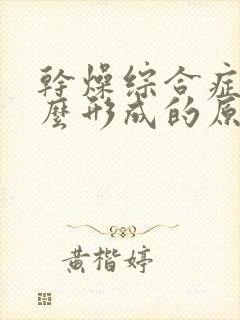 幹燥綜合症
麼形成的原
黃楷婷